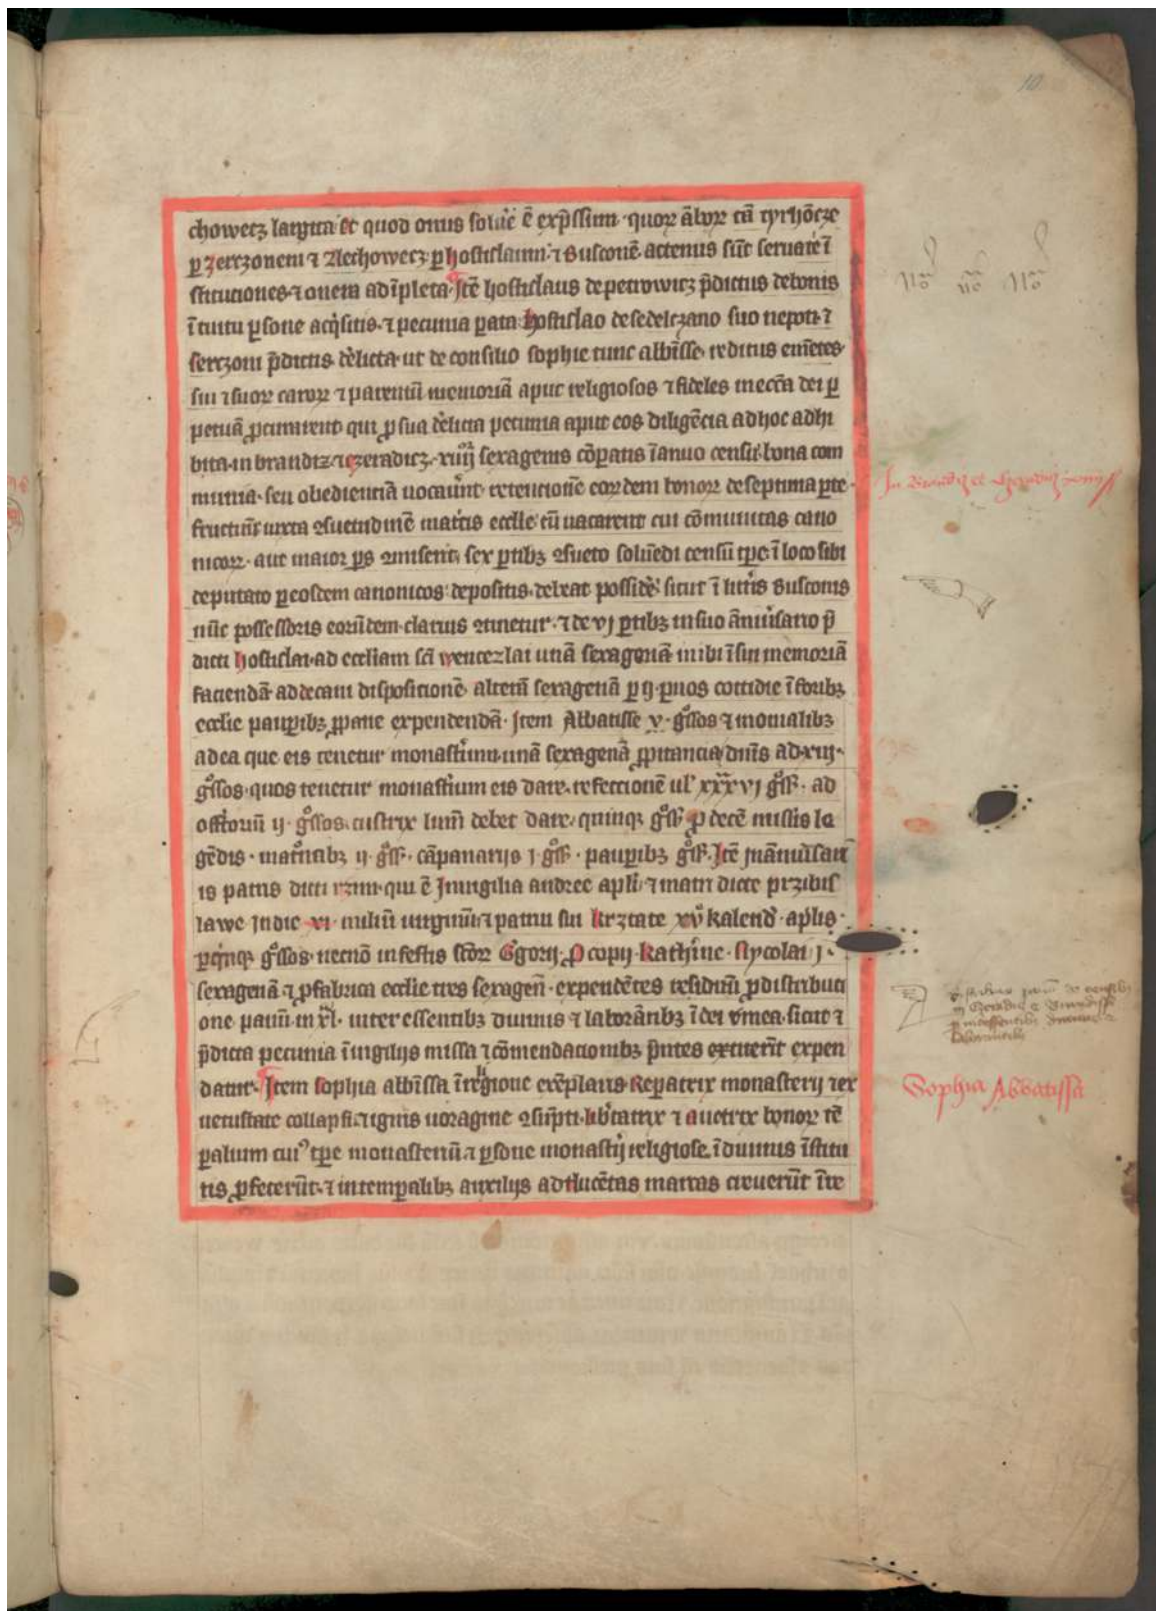 10
chowecz largita et quod onus solũe ẽ exp̃ssim · quoꝝ ãboꝝ tã tyrhõcze
ꝑ zerczonem ⁊ Alechowecz ꝑ hostislaum ⁊ Busconẽ actenus sũt seruate ĩ
stituciones ⁊ onera ad ĩpleta · Jtẽ hostislaus de petrowicz p̃dictus de bonis
ĩtuitu ꝑsone acq̃sitis ⁊ pecunia ꝑata hostislao de sedelczano suo nepoti ⁊
serczoni p̃dictis d̃elicta ut de consilio sophie tunc abb̃isse reditus em̃etes
sui ⁊ suoꝝ caroꝝ ⁊ parentũ memoriã aput religiosos ⁊ fideles dei ꝑ
petuã ꝓcurarent qui ꝓ sua d̃elicta pecunia aput eos diligẽcia ad hoc adhi
bita in brandiz ⁊ czeradicz xiiij sexagenis cõꝑatis ĩ anuo censu bona com
munia seu obedienciã uocaũnt retencionẽ eordem bonoꝝ de septima ꝑte
fructuũ iuxta ꝯsuetudinẽ mat̃is eccl̃ie cũ uacarent cui cõmunitas cano
nicoꝝ aut maior ꝑs ꝯmiserit sex ꝑtibꝫ ꝯsueto soluẽdi censũ tꝑe ĩ loco sibi
deputato ꝑ eosdem canonicos depositis debeat possid̃e sicut ĩ litt̃is Busconis
nũc possessoris eorũdem clarius ꝯtinetur ⁊ de vj ꝑtibꝫ in suo ãniũsario p̃
dicti hostislai ad eccl̃iam sc̃i wenczlai unã sexagenã inibi ĩ sui memoriã
faciendã ad decani disposicionẽ alterã sexagenã ꝑ ij ꝑuos cottidie ĩ foribꝫ
eccl̃ie pauꝑibꝫ ꝓ pane expendendã · Jtem Abbatisse v g̃ssos ⁊ monialibꝫ
ad ea que eis tenetur monast̃ium unã sexagenã ꝓ pitancia dñis ad xiij
g̃ssos quos tenetur monast̃ium eis dare refeccionẽ ul' xxxvj g̃ss · ad
offtoriũ ij g̃ssos custrix lum̃ debet dare quinqꝫ g̃ss ꝓ decẽ missis le
gẽdis · mat̃nabꝫ ij g̃ss · cãpanarijs j g̃ss · pauꝑibꝫ g̃ss · Jtẽ in ãniũsari
is patris dicti rzim qui ẽ Jn uigilia andree ap̃li ⁊ matri dicte przibis
lawe Jn die xi miliũ uirginũ ⁊ patrui sui krztate xv kalend̃ ap̃lis
ꝑ q̃nqꝫ g̃ssos necnõ in festis sc̃oꝝ G̃gorij ꝓcopij Kath̃ine Nycolai j
sexagenã ⁊ ꝓ fabrica eccl̃ie tres sexageñ · expendẽtes residuũ ꝓ distribuci
one panũ in xl · inter essentibꝫ diuinis ⁊ laborãtibꝫ ĩ dei uinea sicut ⁊
p̃dicta pecunia ĩ uigilijs missa ⁊ cõmendacionibꝫ p̃ntes extiterĩt expen
datur · Jtem sophia abb̃issa ĩ regione exẽplaris Reꝑatrix monasterij ⁊ ex
uetustate collapsi ⁊ ignis uoragine ꝯsũpti lib̃catrix ⁊ auctrix bonoꝝ tẽ
ꝑalium cuiꝰ tꝑe monasteriũ ⁊ ꝑsone monast̃ij religiose ĩ diuinis ĩstitu
tis ꝓfecerũt ⁊ in temꝑalibꝫ auxilijs ad creuerũt ĩre
Sophia Abbatissa